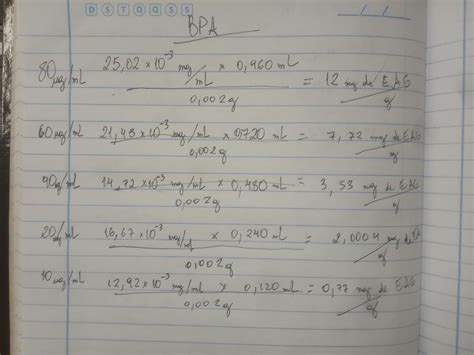 D S T Q Q S S
/ /
BPA
80 µg/mL 25,02 x 10⁻³ mg/mL x 0,960 mL / 0,002g = 12 mg de EAG/g
60 µg/mL 21,43 x 10⁻³ mg/mL x 0,720 mL / 0,002g = 7,72 mg de EAG/g
40 µg/mL 14,72 x 10⁻³ mg/mL x 0,480 mL / 0,002g = 3,53 mg de EAG/g
20 µg/mL 16,67 x 10⁻³ mg/mL x 0,240 mL / 0,002g = 2,0004 mg de /g
10 µg/mL 12,92 x 10⁻³ mg/mL x 0,120 mL / 0,002g = 0,77 mg de EAG/g